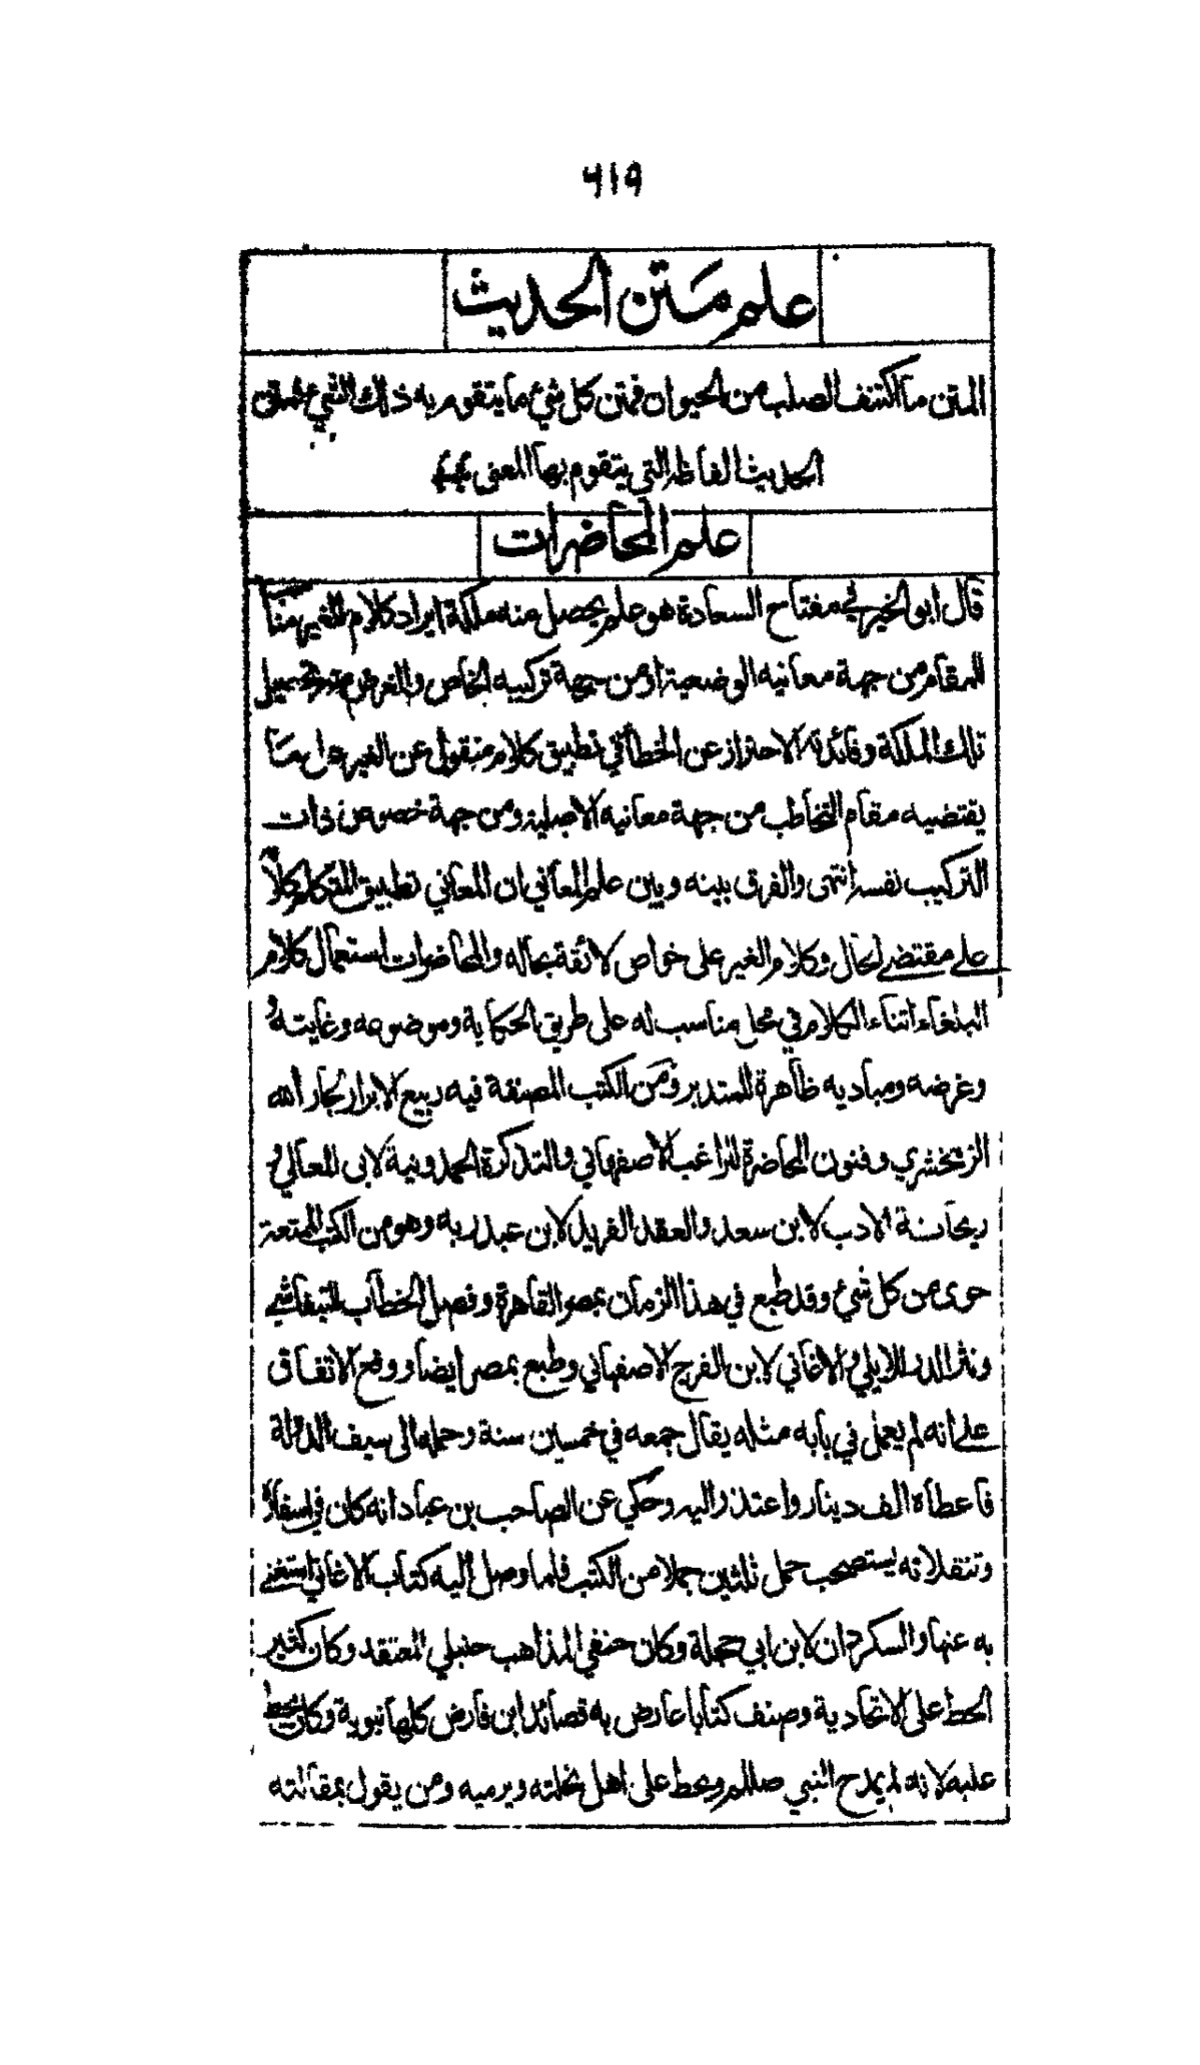 ٦١٩
علم متن الحديث
المتن ما اكتنف الصلب من الحيوان فمتن كل شئ ما يتقوم به ذلك الشيء فمتن
الحديث الفاظه التي يتقوم بها المعنى
علم المحاضرات
قال ابو الخير في مفتاح السعادة هو علم يحصل منه ملكة ايراد كلام للغير مناسبا
للمقام من جهة معانيه الوضعية او من جهة تركيبه الخاص والغرض منه تحصيل
تلك الملكة وفائدته الاحتراز عن الخطأ في تطبيق كلام منقول عن الغير على ما
يقتضيه مقام التخاطب من جهة معانيه الاصلية ومن جهة خصوص ذات
التركيب نفسه انتهى والفرق بينه وبين علم المعاني ان المعاني تطبيق المتكلم كلامه
على مقتضى الحال وكلام الغير على خواص لائقة بحاله والمحاضرات استعمال كلام
البلغاء اثناء الكلام في محل مناسب له على طريق الحكاية وموضوعه وغايته
وغرضه ومباديه ظاهرة للمتدبر ومن الكتب المصنفة فيه ربيع الابرار لجار الله
الزمخشري وفنون المحاضرة للراغب الاصفهاني والتذكرة الحمدونية لابي المعالي و
ريحانة الادب لابن سعد والعقد الفريد لابن عبد ربه وهو من الكتب الممتعة
حوى من كل شئ وقد طبع في هذا الزمان بمصر القاهرة وفصل الخطاب للتيفاشي
ونثر الدر للابي والاغاني لابن الفرج الاصفهاني وطبع بمصر ايضا ووقع الاتفاق
على انه لم يعمل في بابه مثله يقال جمعه في خمسين سنة وحمله الى سيف الدولة
فاعطاه الف دينار واعتذر اليه وحكي عن الصاحب بن عباد انه كان في اسفاره
وتنقلاته يستصحب حمل ثلثين جملا من الكتب فلما وصل اليه كتاب الاغاني استغنى
به عنها والسكردان لابن ابي حجلة وكان حنفي المذاهب حنبلي المعتقد وكان كثير
الحط على الاتحادية وصنف كتابا عارض به قصائد ابن فارض كلها نبوية وكان يحط
عليه لانه لم يمدح النبي صللم ويحط على اهل نحلته ويرميه ومن يقول بمقالته